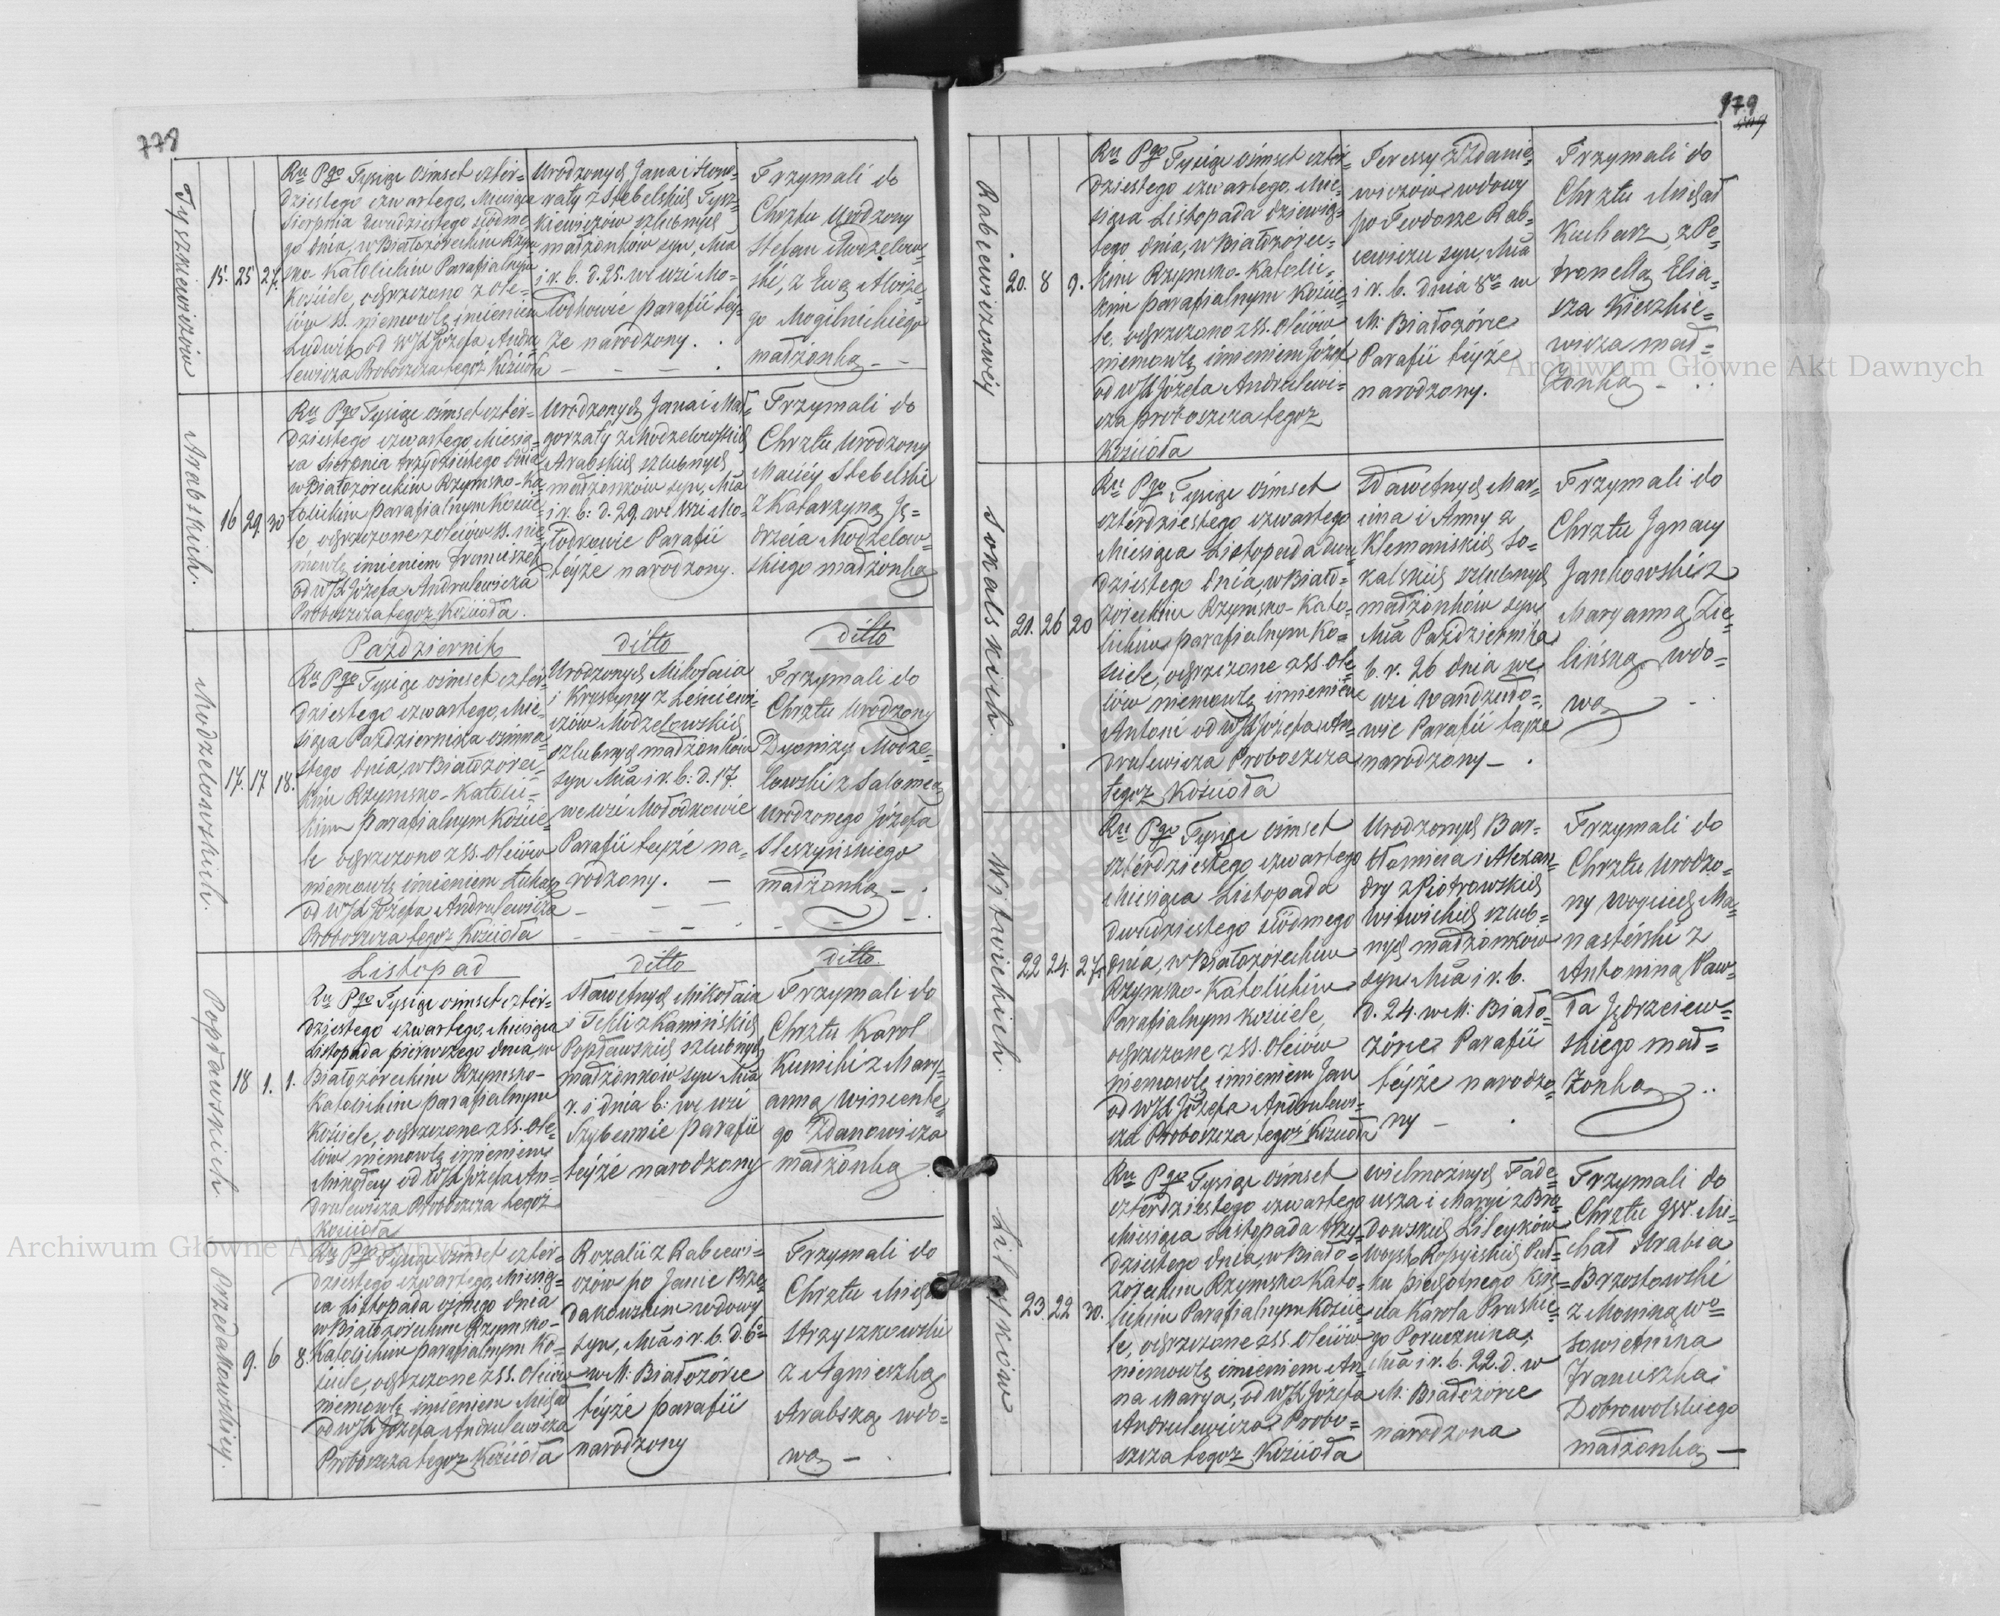 778
Tyszkiewiczów
15. 25 27.
Ru Pgo Tysiąc ośmset czter=
dziestego czwartego, Miesiąca
Sierpnia dwudziestego siódme=
go dnia, w Białozoreckim Rzym=
sko-Katolickim Parafialnym
Kościele, ochrzczono z ole=
iów SS. niemowlę imieniem
Ludwik od WJX Józefa Andru
lewicza Proboszcza tegoż Kościoła
Urodzonych Jana i Hono=
raty z Stebelskich Tysz=
kiewiczów szlubnych
małżonków syn, Mca
i r. b. d. 25. we wsi Mo=
łodkowie parafii tey=
że narodzony.
Trzymali do
Chrztu Urodzony
Stefan Modzelew=
ski, z Ewą Aloize=
go Mogilnickiego
małżonką
Arabskich.
16 29. 30
Ru Pgo Tysiąc ośmset czter=
dziestego czwartego, Miesią=
ca Sierpnia trzydziestego dnia
w Białozoreckim Rzymsko-Ka=
tolickim parafialnym Koście=
le ochrzczono z oleiów SS. nie=
mowlę imieniem Franciszek
od WJX Józefa Andrulewicza
Proboszcza tegoż Kościoła.
Urodzonych Jana i Mał=
gorzaty z Modzelewskich
Arabskich szlubnych
małżonków syn, Mca
i r. b: d. 29. we wsi Mo=
łodkowie Parafii
teyże narodzony.
Trzymali do
Chrztu Urodzony
Maciey Stebelski
z Katarzyną Ję=
drzeia Modzelow=
skiego małżonką
Modzelowskich.
17. 17 18.
Październik
Ru Pgo Tysiąc ośmset czter=
dziestego czwartego, Mie=
siąca Października ośmna=
stego dnia, w Białozorec=
kim Rzymsko-Katolic=
kim parafialnym Koście=
le ochrzczono z SS. Oleiów
niemowlę imieniem Łukasz
od WJX Józefa Andrulewicza
Proboszcza tegoż Kościoła
ditto
Urodzonych Mikołaia
i Krystyny z Leńciewi=
czów Modzelowskich
szlubnych małżonków
syn Mca i r. b: d. 17.
we wsi Mołodkowie
Parafii teyże na=
rodzony.
ditto
Trzymali do
Chrztu Urodzony
Dyonizy Modze=
lowski z Salomeą
Urodzonego Józefa
Sleszyńskiego
małżonką
Popławskich
18 1. 1.
Listopad
Ru Pgo Tysiąc ośmset czter=
dziestego czwartego, Miesiąca
Listopada pierwszego dnia, w
Białozoreckim Rzymsko-
Katolickim parafialnym
Kościele, ochrzczono z SS. Ole=
iów niemowlę imieniem
Mikołay od WJX Józefa An=
drulewicza Proboszcza tegoż
Kościoła
ditto
Sławetnych Mikołaia
i Tekli z Kamińskich
Popławskich szlubnych
małżonków syn Mca
r. i dnia b: we wsi
Szybennie parafii
teyże narodzony
ditto
Trzymali do
Chrztu Karol
Kumiki z Mary=
anną Wincente=
go Zdanowicza
małżonką
Przedakowskiey.
9. 6 8.
Ru Pgo Tysiąc ośmset czter=
dziestego czwartego, Miesią=
ca Listopada ośmego dnia
w Białozoreckim Rzymsko-
Katolickim parafialnym Ko=
ściele, ochrzczono z SS. Oleiów
niemowlę imieniem Michał
od WJX Józefa Andrulewicza
Proboszcza tegoż Kościoła
Rozalii z Rabcewi=
czów po Janie Prze=
dakowskim wdowy
syn, Mca i r. b. d. 6o
w M: Białozórce
teyże parafii
narodzony
Trzymali do
Chrztu Mich
Stryszkowski
z Agnieszką
Arabską wdo=
wą
Archiwum Główne Akt Dawnych
779
Rabcewiczowey
20. 8 9.
Ru Pgo Tysiąc ośmset czter=
dziestego czwartego, Mie=
siąca Listopada dziewią=
tego dnia, w Białozorec=
kim Rzymsko-Katolic=
kim parafialnym Koście=
le, ochrzczono z SS. Oleiów
niemowlę imieniem Józef
od WJX Józefa Andrulewi=
cza Proboszcza tegoż
Kościoła
Teressy z Zdanie=
wiczów wdowy
po Teodorze Rab=
cewiczu syn, Mca
i r. b. dnia 8o w
M: Białozórce
Parafii teyże
narodzony.
Trzymali do
Chrztu Michał
Kucharz, z Pe=
tronellą Elia=
sza Kieszkie=
wicza mał=
żonką
Sokalskich.
21. 26 20
Ru Pgo Tysiąc ośmset
czterdziestego czwartego
Miesiąca Listopada dwu
dziestego dnia, w Biało=
zoreckim Rzymsko-Kato=
lickim parafialnym Ko=
ściele, ochrzczono z SS. Ole
iów niemowlę imieniem
Antoni od WJX Józefa An=
drulewicza Proboszcza
tegoż Kościoła
Sławetnych Mar=
cina i Anny z
Klemańskich So=
kalskich szlubnych
małżonków syn
Mca Października
b. r. 26 dnia we
wsi Wandzulo=
wie Parafii tayże
narodzony
Trzymali do
Chrztu Ignacy
Jankowski z
Maryanną Zie=
lińską wdo=
wą
Witwickich.
22 24. 27.
Ru Pgo Tysiąc ośmset
czterdziestego czwartego
Miesiąca Listopada
dwudziestego siódmego
dnia, w Białozoreckim
Rzymsko-Katolickim
Parafialnym kościele,
ochrzczono z SS. Oleiów
niemowlę imieniem Jan
od WJX Józefa Andrulewi=
cza Proboszcza tegoż Kościoła
Urodzonych Bar=
tłomieia i Alexan=
dry z Piotrowskich
Witwickich szlub=
nych małżonków
syn Mca i r. b.
d. 24. w M: Biało=
zórce Parafii
teyże narodzo
ny
Trzymali do
Chrztu Urodzo=
ny Woyciech Ma=
nasterski z
Antoniną Paw=
ła Jędrzeiew=
skiego mał=
żonką
Lileyków
23. 22 30.
Ru Pgo Tysiąc ośmset
czterdziestego czwartego
Miesiąca Listopada trzy=
dziestego dnia, w Biało=
zoreckim Rzymsko-Kato=
lickim Parafialnym Koście
le, ochrzczono z SS. Oleiów
niemowlę imieniem An=
na Marya, od WJX Józefa
Andrulewicza Probo=
szcza tegoż Kościoła
Wielmożnych Tade=
usza i Maryi z Bra=
dowskich Lileyków
Woysk Rossyiskich Puł=
ku piechotnego Księ=
cia Karola Pruskie=
go Porucznika,
Mca i r. b. 22. d. w
M: Białozórce
narodzona
Trzymali do
Chrztu JW. Mi=
chał Hrabia
Brzostowski
z Moniką wo=
sowietnika
Franciszka
Dobrowolskiego
małżonką
Archiwum Główne Akt Dawnych